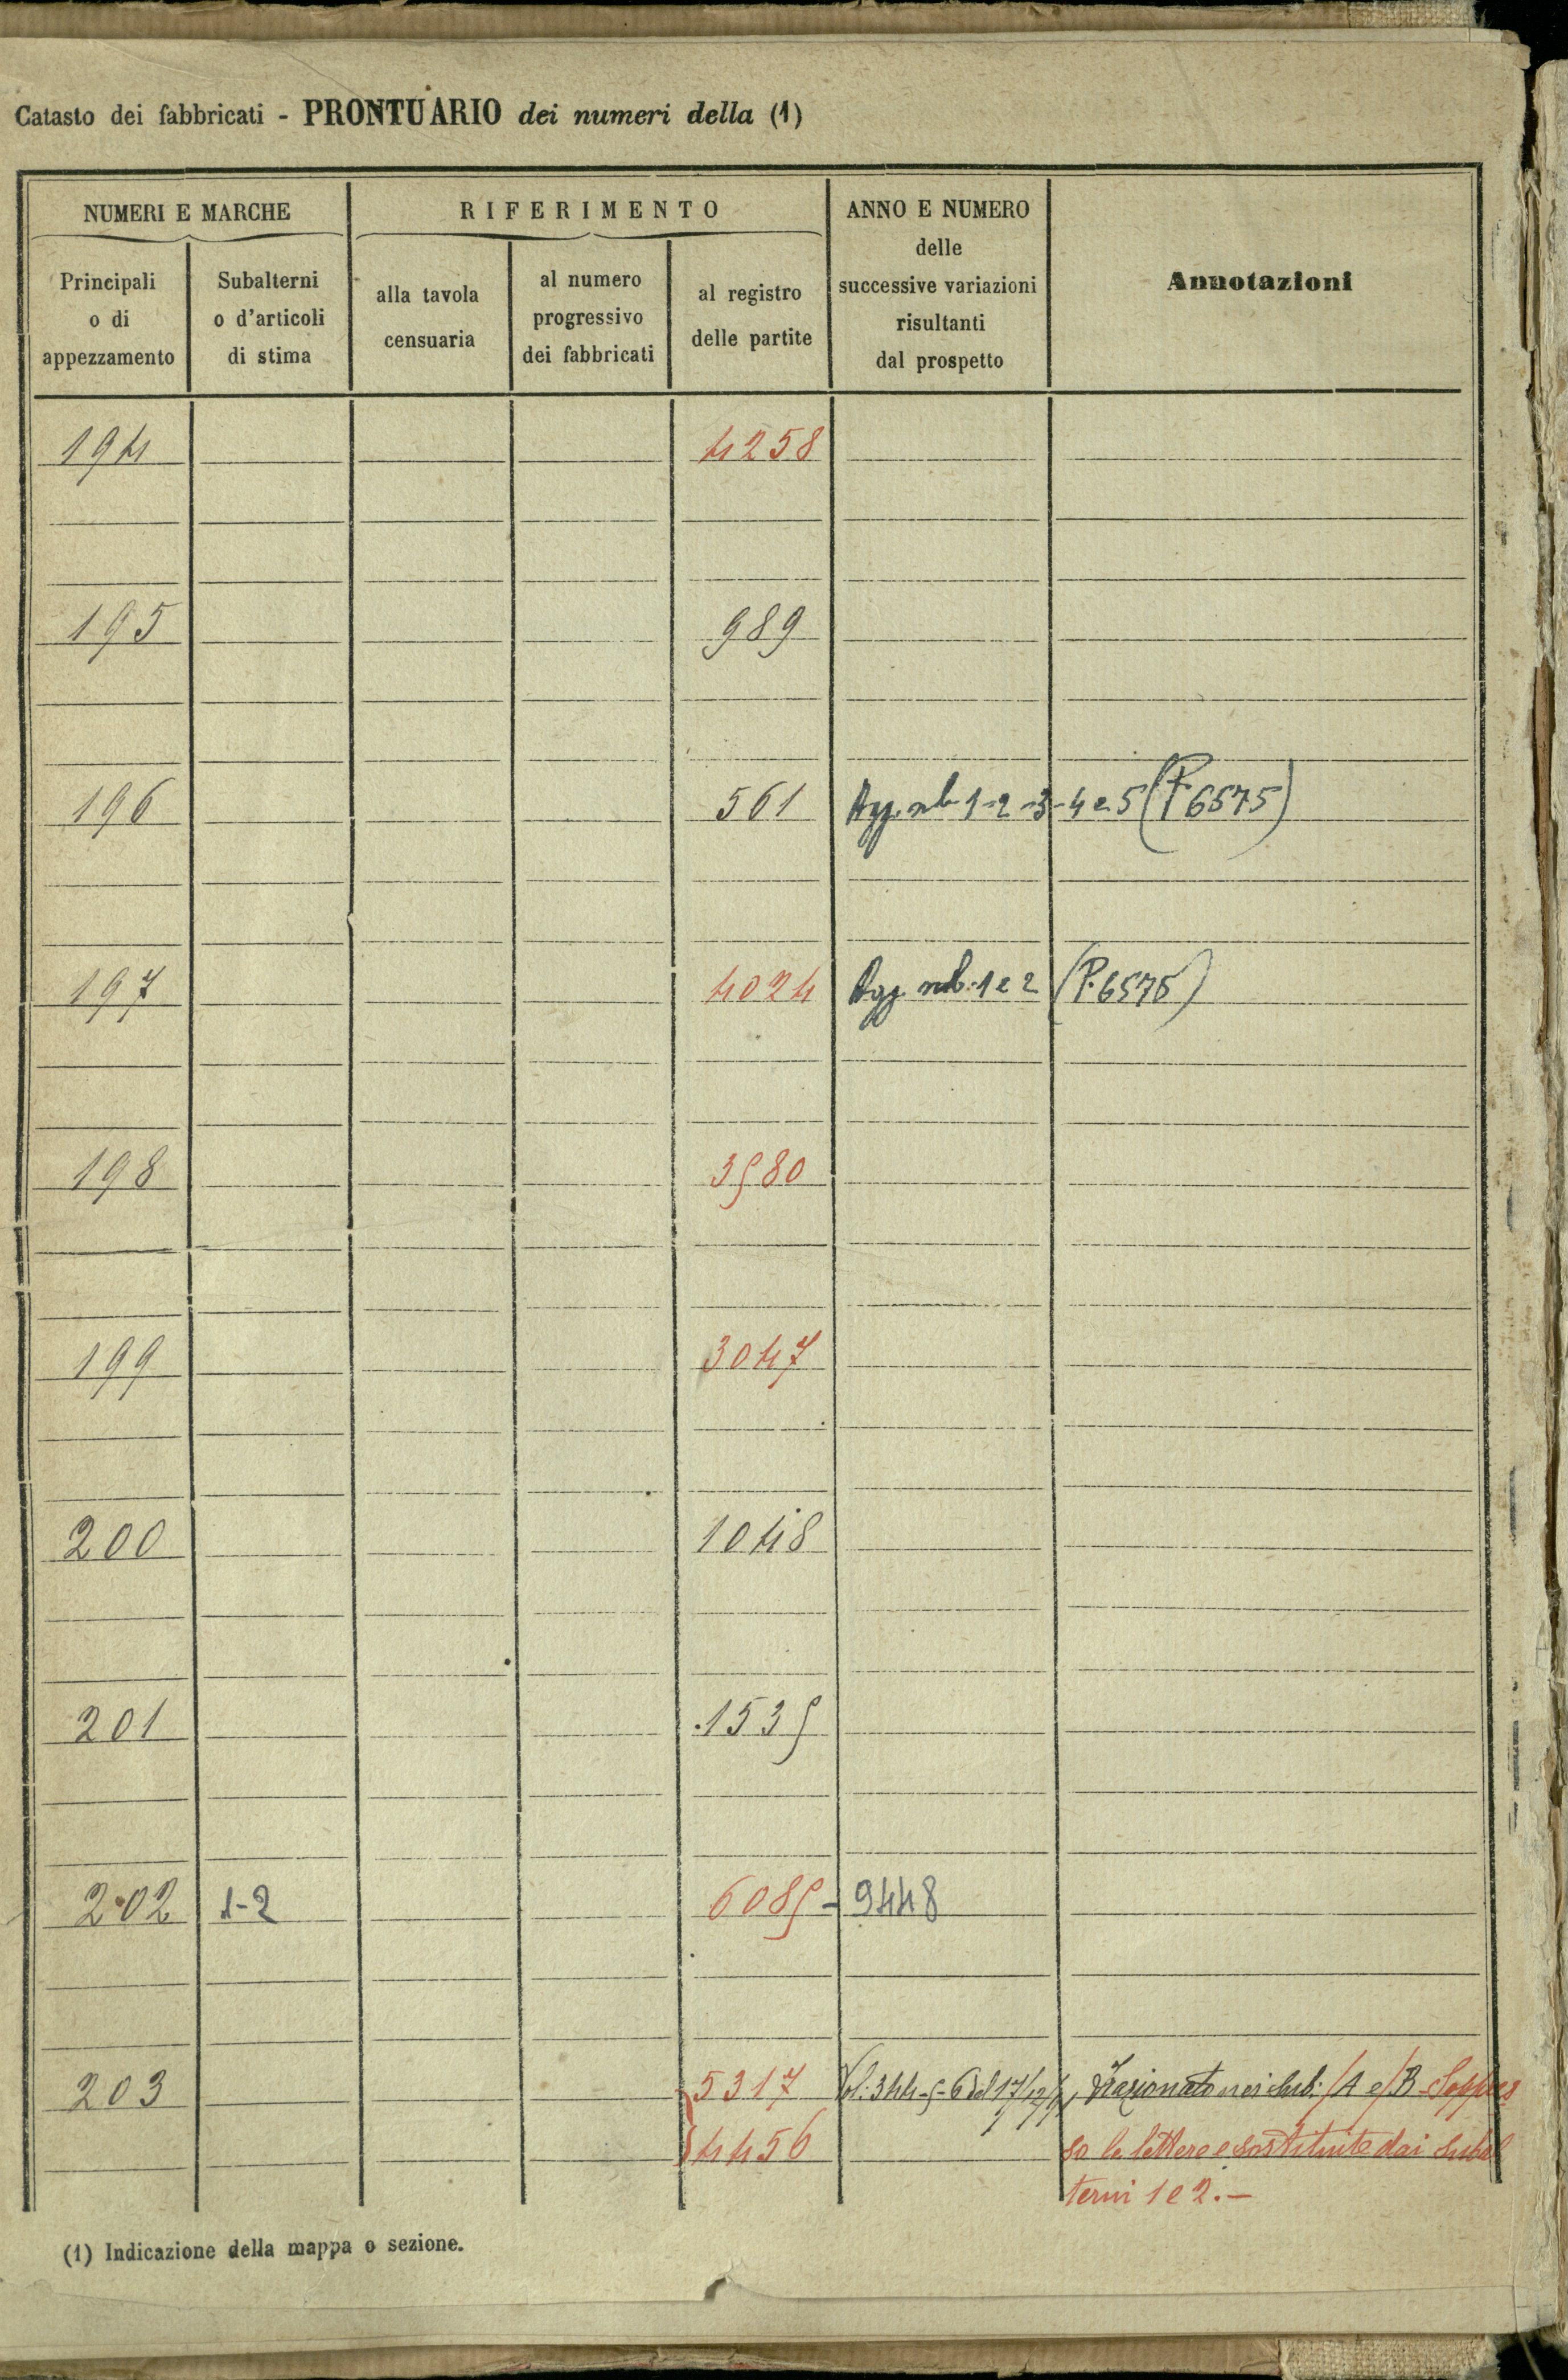 Catasto dei fabbricati - PRONTUARIO dei numeri della (1)
NUMERI E MARCHE
RIFERIMENTO
ANNO E NUMERO
delle
successive variazioni
risultanti
dal prospetto
Annotazioni
Principali
o di
appezzamento
Subalterni
o d'articoli
di stima
alla tavola
censuaria
al numero
progressivo
dei fabbricati
al registro
delle partite
194 4258
195 989
196 561 Agg. sub 1-2-3-4 e 5 (P. 6575)
197 4024 Agg. sub. 1 e 2 (P. 6575)
198 3580
199 3047
200 1048
201 1535
202 1-2 6085 - 9448
203 5317 frazionato nei sub: /A e /B - Soppres
4456 so le lettere e sostituite dai subal
terni 1 e 2.-
(1) Indicazione della mappa o sezione.